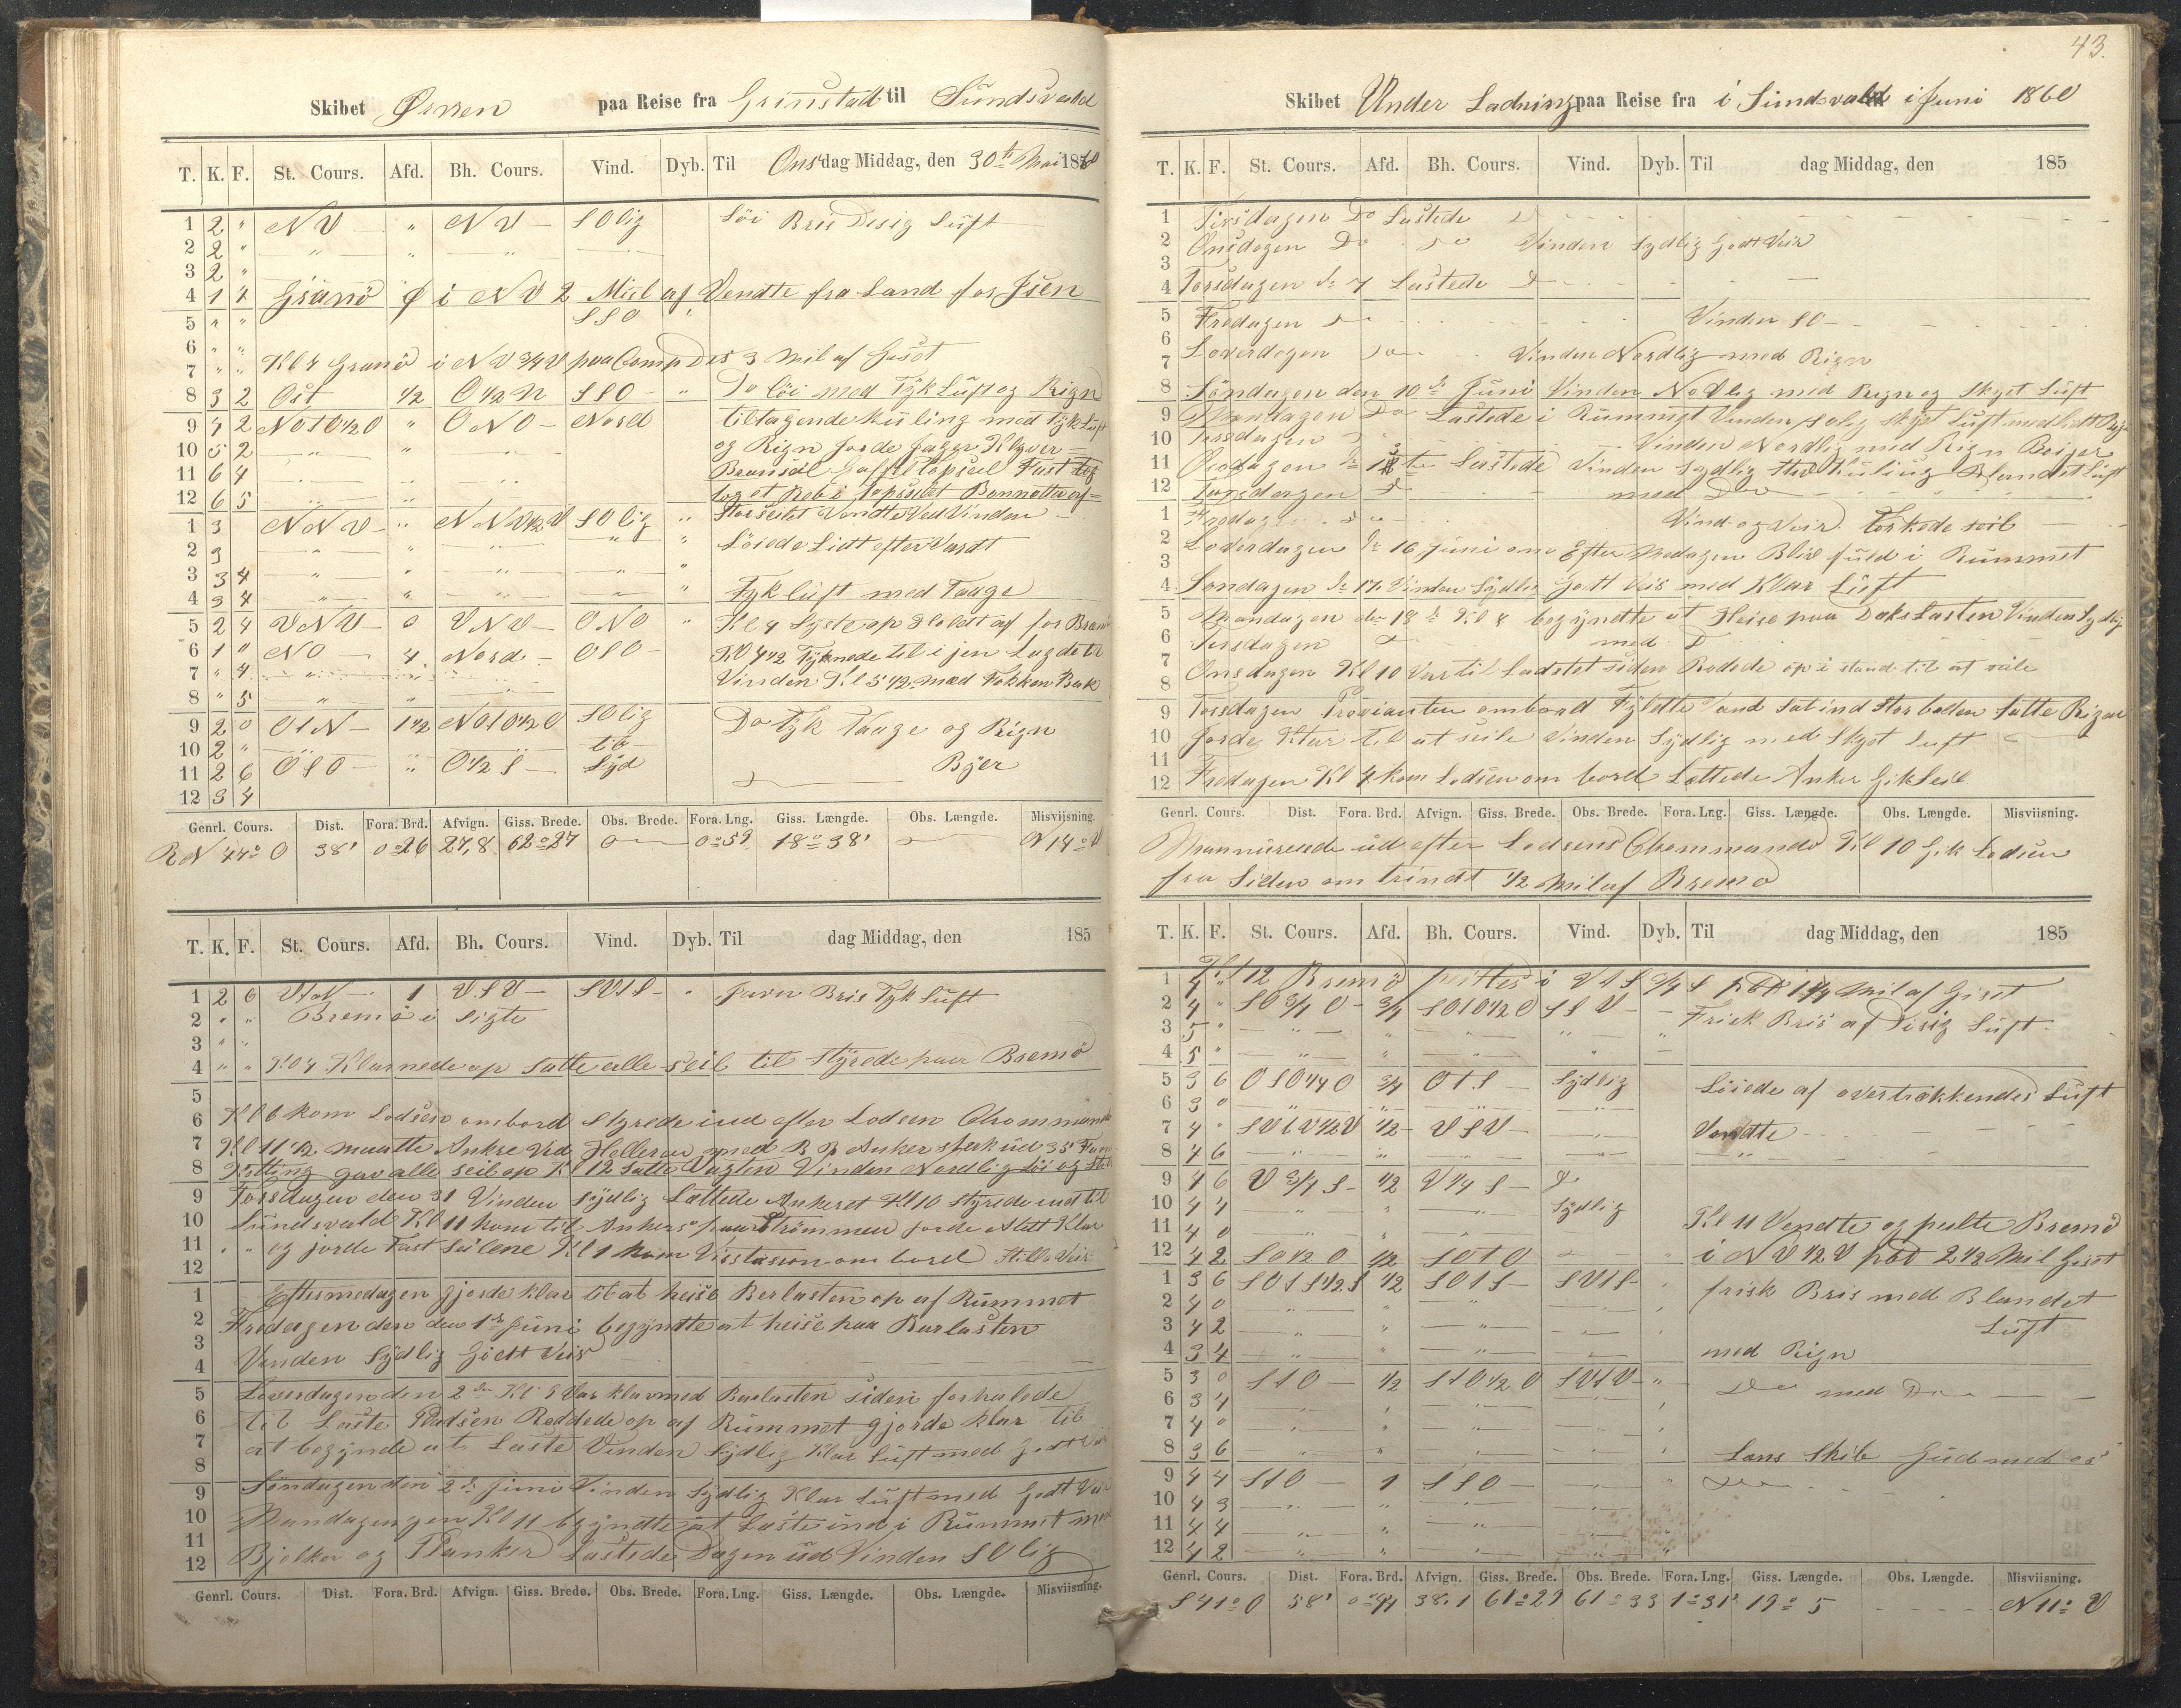 Skibet Ørnen paa Reise fra Grimstad til Sundsvald
T. K. F. St. Cours. Afd. Bh. Cours. Vind. Dyb. Til Onsdag Middag, den 30te Mai 1860
1 2 " NV " NV SOlig Löi Bris Disig Luft
2 2 "
3 2 "
4 1 4 Granö i NV 2 Miil af Vendte fra Land for Isen
5 " " SSO
6 " "
7 " " Kl 4 Granö i NV 3/4 V paa Comp Des 3 Mil af
8 3 2 Ost 1/2 O 1/2 N SSO Do löi med Tyk Luft og Rign
9 4 2 NO t O 1/2 O " ONO Nord tiltagende Kuling med Tyk Luft
10 5 2 og Rign Jager Klyver
11 6 4 Bramseil Gaffeltopseil Fast
12 6 5 tog et Reb i Topseilet Bonnetten af
1 3 NNV " NNV 1/2 V SOlig " Storseilet Vendte Ved Vinden
2 3 Löiede Lidt efter Vardt
3 3 4
4 3 4 Tyk luft med Taage
5 2 4 VNV 0 VNV ONO " Kl 4 op Holdt af for
6 1 " NO 4 Nord OSO Kl 4 1/2 Tyknede til i jen Lagde til
7 " 4 Vinden Kl 5 1/2 med Fokken Bak
8 " 5
9 2 0 OtN 1 1/2 NOtO 1/2 O SOlig Do Tyk Taage og Rign
10 2 " til
11 2 6 OSO " O 1/2 S Syd Byer
12 3 4
Genrl. Cours. Dist. Fora. Brd. Afvign. Giss. Brede. Obs. Brede. Fora. Lng. Giss. Længde. Obs. Længde. Misviisning.
RN 44° O 38' 0°26 27,8 62°27 0°59 18°38' N 14° V
T. K. F. St. Cours. Afd. Bh. Cours. Vind. Dyb. Til dag Middag, den 185
1 2 6 VtN 1 VSV SVtS " Bris Tyk Luft
2 " " Bremö i Sigte
3 " "
4 " " Kl 4 Klarnede op satte alle seil til Styrede paa Bremö
5
6 Kl 6 kom Lodsen ombord Styrede ind efter Lodsen Chommando
7 Kl 11 1/2 maatte Ankre ved Helleren med B B Anker stak ud 35
8 Ketting gav alle seil op Kl 12 Satte Vagten Vinden Nordlig Löi og
9 Torsdagen den 31 Vinden Sydlig Lættede Ankeret Kl 10 Styrede ind til
10 Sundsvald Kl 11 kom til Ankers paa Strömmen Klar
11 " " og jorde Fast Seilene Kl 1 kom Visitasion om bord Stille Veir
12
1 Eftermedagen gjorde klar til at heise Barlasten op af Rummet
2 Fredagen den 1ste Juni begyndte at heise paa Barlasten
3 Vinden Sydlig Godt Veir
4
5 Löverdagen den 2den Kl 9 Var klar med Barlasten siden forhalede
6 til Laste Pladsen Roddede op af Rummet gjorde klar til
7 at begynde at Laste Vinden Sydlig Klar Luft med Godt Veir
8
9 Söndagen den Juni Vinden Sydlig Klar Luft med Godt Veir
10 Mandagen Kl 11 begyndte at Laste ind i Rummet med
11 Bjelker og Planker Lastede Dagen ud Vinden SOlig
12
Genrl. Cours. Dist. Fora. Brd. Afvign. Giss. Brede. Obs. Brede. Fora. Lng. Giss. Længde. Obs. Længde. Misviisning.
43.
Skibet Under Ladning paa Reise fra i Sundsvald i Juni 1860
T. K. F. St. Cours. Afd. Bh. Cours. Vind. Dyb. Til dag Middag, den 185
1 Tirsdagen Do Lastede
2 Onsdagen Do Do Vinden Sydlig Godt Veir
3
4 Torsdagen d 7 Lastede
5 Fredagen Vinden SO
6 Löverdagen Do Vinden Nordlig med Rign
7
8 Söndagen den 10de Juni Vinden NoVlig med Rign og Skyet Luft
9 Mandagen Do Lastede i Rummet Vinden SOlig Skyet Luft med
10 Tirsdagen Vinden Nordlig med RignBöijer
11 Onsdagen Lastede Vinden Sydlig Kuling Blandet Luft
12 Torsdagen med Do
1 Fredagen Do Vind og Veir Törkede seil
2 Löverdagen d 16 Juni om Eftermedagen Blev fuld i Rummet
3
4 Söndagen d 17. Vinden Sydlig Gott Veir med Klar Luft
5 Mandagen den 18de Kl 8 begyndte at Heise paa DæksLasten Vinden Sydlig
6 Tirsdagen med
7 Onsdagen Kl 10 Var til Ladstet siden Rodede op i stand til at seile
8
9 Torsdagen Provianten ombord Fyldtte Vand Sat ind Storbaaden Satte Rigen
10 Jorde Klar til at seile Vinden Sydlig med Skyet luft
11
12 Fredagen Kl 4 kom Lodsen om bord Lættede Anker Gik Seil
Genrl. Cours. Dist. Fora. Brd. Afvign. Giss. Brede. Obs. Brede. Fora. Lng. Giss. Længde. Obs. Længde. Misviisning.
Mannurerede ud efter Lodsens Chommando Kl 10 Gik Lodsen
fra Siden om trindt 1/2 Mil af Bremö
T. K. F. St. Cours. Afd. Bh. Cours. Vind. Dyb. Til dag Middag, den 185
1 4 " Kl 12 Bremö peiltes i VtS 3/4 S 1 1/4 Mil af Gisset
2 4 " SO 3/4 O 3/4 SOtO 1/2 O SSV Frisk Bris af Disig Luft
3 5 "
4 5 "
5 3 6 OSO 1/4 O 3/4 OtS Sydlig Löiede af overtrækkendes Luft
6 3 0
7 4 " SVtV 1/2 V 1/2 VSV Vendte
8 4 6
9 4 6 V 3/4 S 1/2 V 1/4 S Do
10 4 4 Sydlig
11 4 0 Kl 11 Vendte og peilte Bremö
12 4 2 SO 1/2 O 1/2 SOtO i NV 1/2 V 2 1/2 Mil Gisset
1 3 6 SOtS 1/2 S 1/2 SOtS SVtS frisk Bris med Blandet
2 4 0
3 4 2 Luft
4 3 4 med Rign
5 3 0 StO 1/2 StO 1/2 O SVtV Do med Do
6 3 4
7 4 0
8 3 6 Lans Skib Gud med os
9 4 4 StO 1 SSO Do
10 4 3
11 4 4
12 4 2
Genrl. Cours. Dist. Fora. Brd. Afvign. Giss. Brede. Obs. Brede. Fora. Lng. Giss. Længde. Obs. Længde. Misviisning.
S 41° O 58' 0°44 38.1 61°29 61°33 1°31' 19°5 N 11° V